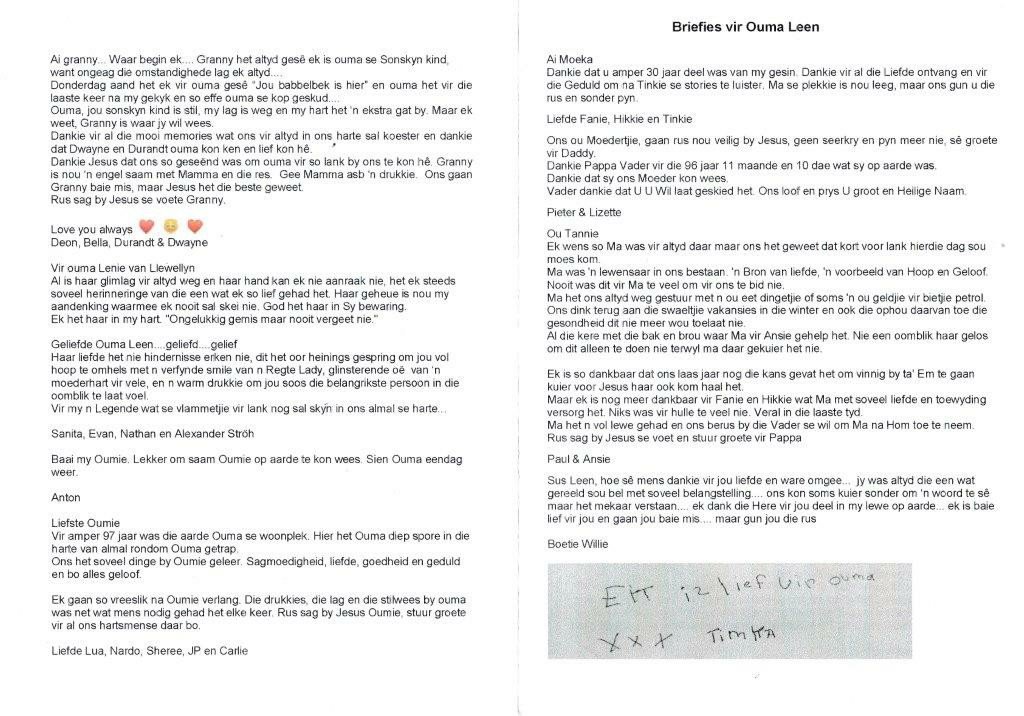 Ai granny... Waar begin ek.... Granny het altyd gesê ek is ouma se Sonskyn kind,
want ongeag die omstandighede lag ek altyd....
Donderdag aand het ek vir ouma gesê "Jou babbelbek is hier" en ouma het vir die
laaste keer na my gekyk en so effe ouma se kop geskud....
Ouma, jou sonskyn kind is stil, my lag is weg en my hart het 'n ekstra gat by. Maar ek
weet, Granny is waar jy wil wees.
Dankie vir al die mooi memories wat ons vir altyd in ons harte sal koester en dankie
dat Dwayne en Durandt ouma kon ken en lief kon hê.
Dankie Jesus dat ons so geseënd was om ouma vir so lank by ons te kon hê. Granny
is nou 'n engel saam met Mamma en die res. Gee Mamma asb 'n drukkie. Ons gaan
Granny baie mis, maar Jesus het die beste geweet.
Rus sag by Jesus se voete Granny.
Love you always ❤️ 😇 ❤️
Deon, Bella, Durandt & Dwayne
Vir ouma Lenie van Llewellyn
Al is haar glimlag vir altyd weg en haar hand kan ek nie aanraak nie, het ek steeds
soveel herinneringe van die een wat ek so lief gehad het. Haar geheue is nou my
aandenking waarmee ek nooit sal skei nie. God het haar in Sy bewaring.
Ek het haar in my hart. "Ongelukkig gemis maar nooit vergeet nie."
Geliefde Ouma Leen....geliefd....gelief
Haar liefde het nie hindernisse erken nie, dit het oor heinings gespring om jou vol
hoop te omhels met n verfynde smile van n Regte Lady, glinsterende oë van 'n
moederhart vir vele, en n warm drukkie om jou soos die belangrikste persoon in die
oomblik te laat voel.
Vir my n Legende wat se vlammetjie vir lank nog sal skyn in ons almal se harte...
Sanita, Evan, Nathan en Alexander Ströh
Baai my Oumie. Lekker om saam Oumie op aarde te kon wees. Sien Ouma eendag
weer.
Anton
Liefste Oumie
Vir amper 97 jaar was die aarde Ouma se woonplek. Hier het Ouma diep spore in die
harte van almal rondom Ouma getrap.
Ons het soveel dinge by Oumie geleer. Sagmoedigheid, liefde, goedheid en geduld
en bo alles geloof.
Ek gaan so vreeslik na Oumie verlang. Die drukkies, die lag en die stilwees by ouma
was net wat mens nodig gehad het elke keer. Rus sag by Jesus Oumie, stuur groete
vir al ons hartsmense daar bo.
Liefde Lua, Nardo, Sheree, JP en Carlie
Briefies vir Ouma Leen
Ai Moeka
Dankie dat u amper 30 jaar deel was van my gesin. Dankie vir al die Liefde ontvang en vir
die Geduld om na Tinkie se stories te luister. Ma se plekkie is nou leeg, maar ons gun u die
rus en sonder pyn.
Liefde Fanie, Hikkie en Tinkie
Ons ou Moedertjie, gaan rus nou veilig by Jesus, geen seerkry en pyn meer nie, sê groete
vir Daddy.
Dankie Pappa Vader vir die 96 jaar 11 maande en 10 dae wat sy op aarde was.
Dankie dat sy ons Moeder kon wees.
Vader dankie dat U U Wil laat geskied het. Ons loof en prys U groot en Heilige Naam.
Pieter & Lizette
Ou Tannie
Ek wens so Ma was vir altyd daar maar ons het geweet dat kort voor lank hierdie dag sou
moes kom.
Ma was 'n lewensaar in ons bestaan. 'n Bron van liefde, 'n voorbeeld van Hoop en Geloof.
Nooit was dit vir Ma te veel om vir ons te bid nie.
Ma het ons altyd weg gestuur met n ou eet dingetjie of soms 'n ou geldjie vir bietjie petrol.
Ons dink terug aan die swaeltjie vakansies in die winter en ook die ophou daarvan toe die
gesondheid dit nie meer wou toelaat nie.
Al die kere met die bak en brou waar Ma vir Ansie gehelp het. Nie een oomblik haar gelos
om dit alleen te doen nie terwyl ma daar gekuier het nie.
Ek is so dankbaar dat ons laas jaar nog die kans gevat het om vinnig by ta' Em te gaan
kuier voor Jesus haar ook kom haal het.
Maar ek is nog meer dankbaar vir Fanie en Hikkie wat Ma met soveel liefde en toewyding
versorg het. Niks was vir hulle te veel nie. Veral in die laaste tyd.
Ma het n vol lewe gehad en ons berus by die Vader se wil om Ma na Hom toe te neem.
Rus sag by Jesus se voet en stuur groete vir Pappa
Paul & Ansie
Sus Leen, hoe sê mens dankie vir jou liefde en ware omgee... jy was altyd die een wat
gereeld sou bel met soveel belangstelling.... ons kon soms kuier sonder om 'n woord te sê
maar het mekaar verstaan.... ek dank die Here vir jou deel in my lewe op aarde... ek is baie
lief vir jou en gaan jou baie mis.... maar gun jou die rus
Boetie Willie
EK iz lief vir ouma
x x x Tinka